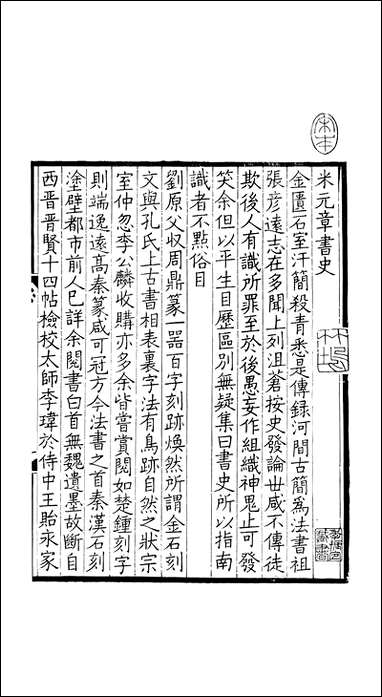 宋本
米元章書史
金匱石室汗簡殺青悉是傳録河間古簡爲法書祖
張彦遠志在多聞上列沮蒼按史發論世咸不傳徒
欺後人有識所罪至於後愚妄作組織神鬼止可發
笑余但以平生目歷區別無疑集曰書史所以指南
識者不點俗目
劉原父收周鼎篆一器百字刻跡煥然所謂金石刻
文與孔氏上古書相表裏字法有鳥跡自然之狀宗
室仲忽李公麟收購亦多余皆嘗賞閱如楚鍾刻字
則端逸遠高秦篆咸可冠方今法書之首秦漢石刻
塗壁都市前人已詳余閱書白首無魏遺墨故斷自
西晉晉賢十四帖檢校太師李瑋於侍中王貽永家